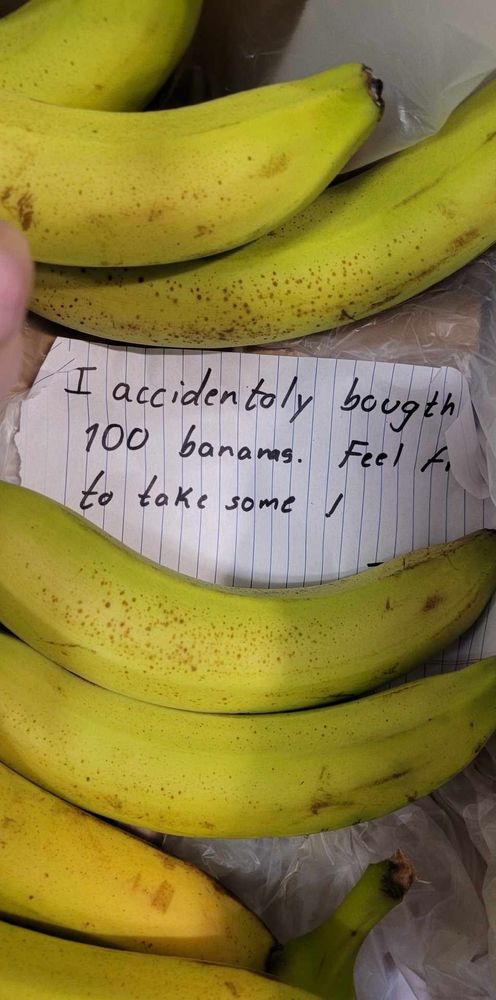 I accidentaly bougth
100 bananas. Feel
to take some !